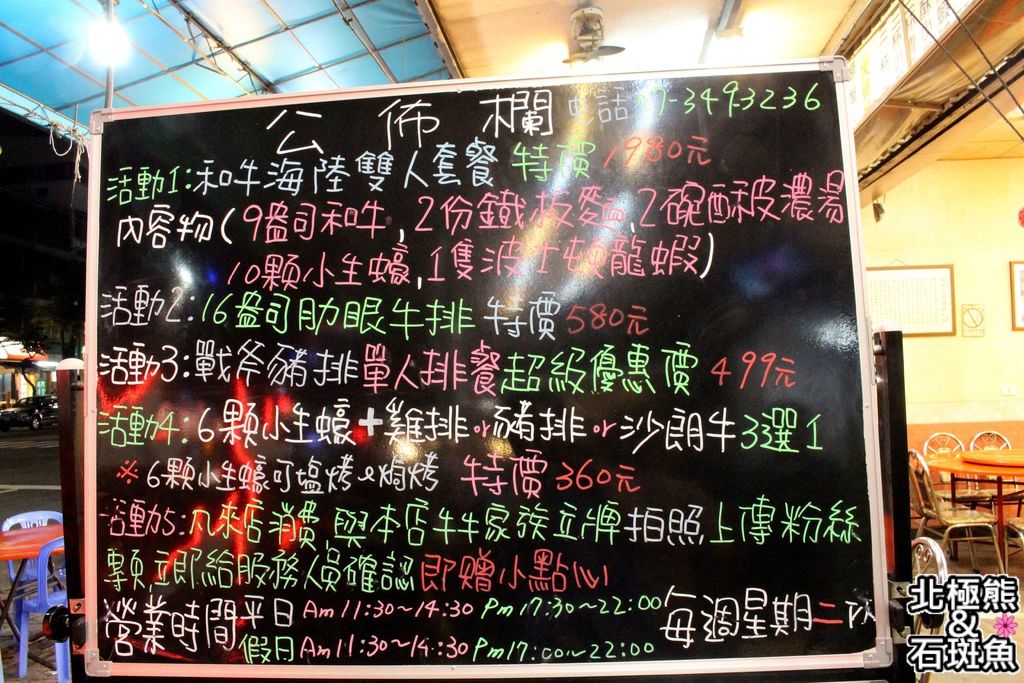 公佈欄 電話 7-3493236
活動1:和牛海陸雙人套餐 特價 1980元
內容物(9盎司和牛,2份鐵板麵,2碗酥皮濃湯
10顆小生蠔,1隻波士頓龍蝦)
活動2:16盎司肋眼牛排 特價 580元
活動3:戰斧豬排單人排餐超級優惠價 499元
活動4:6顆小生蠔+雞排or豬排or沙朗牛3選1
※6顆小生蠔可塩烤&焗烤 特價 360元
活動5:凡來店消費與本店牛牛家族立牌拍照上傳粉絲
專頁,立即給服務員確認即贈小點心
營業時間 平日 Am 11:30~14:30 Pm 17:30~22:00 每週星期二
假日 Am 11:30~14:30 Pm 17:00~22:00
北極熊
&
石斑魚